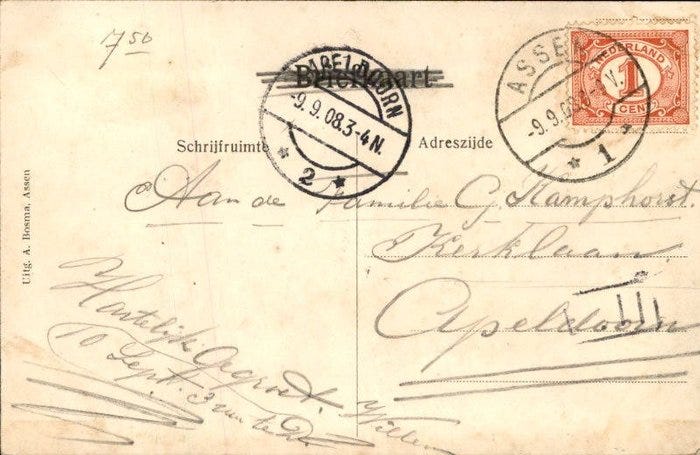 7 50
Briefkaart
APELDOORN
-9.9.08.3-4N.
2
ASSEN
-9.9.08
1
NEDERLAND
1
CENT
Schrijfruimte
Adreszijde
Uitg. A. Bosma, Assen
Aan de Familie G. Kamphorst.
Kerklaan
Apeldoorn
III
Hartelijk gegroet. Willem
10 Sept. 3 uur